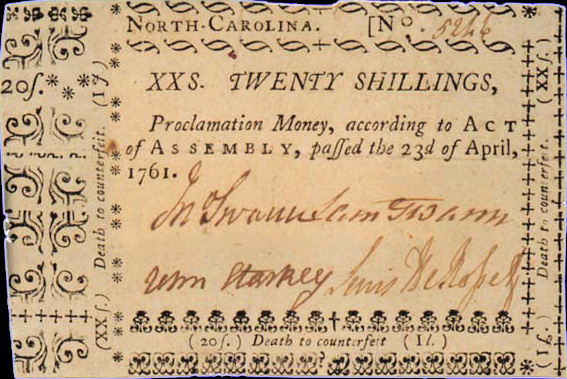 NORTH-CAROLINA. [No. 5246
XXS. TWENTY SHILLINGS,
Proclamation Money, according to ACT
of ASSEMBLY, paſſed the 23d of April,
1761.
Jno Swann Sam Swann
Starkey Lewis De Roſſet
(20ſ.) Death to counterfeit (1l.)
20ſ.
(XXſ.) Death to counterfeit. (1ſ)
(1ſ.) Death to counterfeit. (XXſ.)